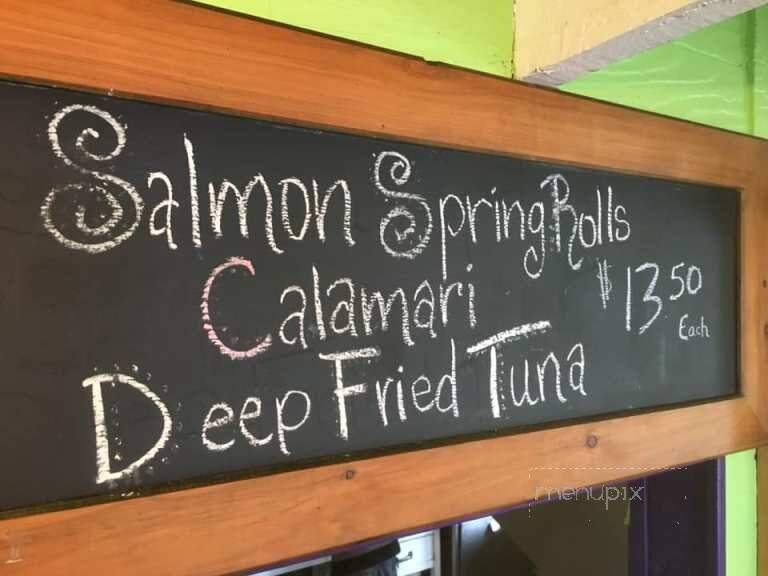 Salmon Spring Rolls
Calamari
$13.50
Each
Deep Fried Tuna
menupix